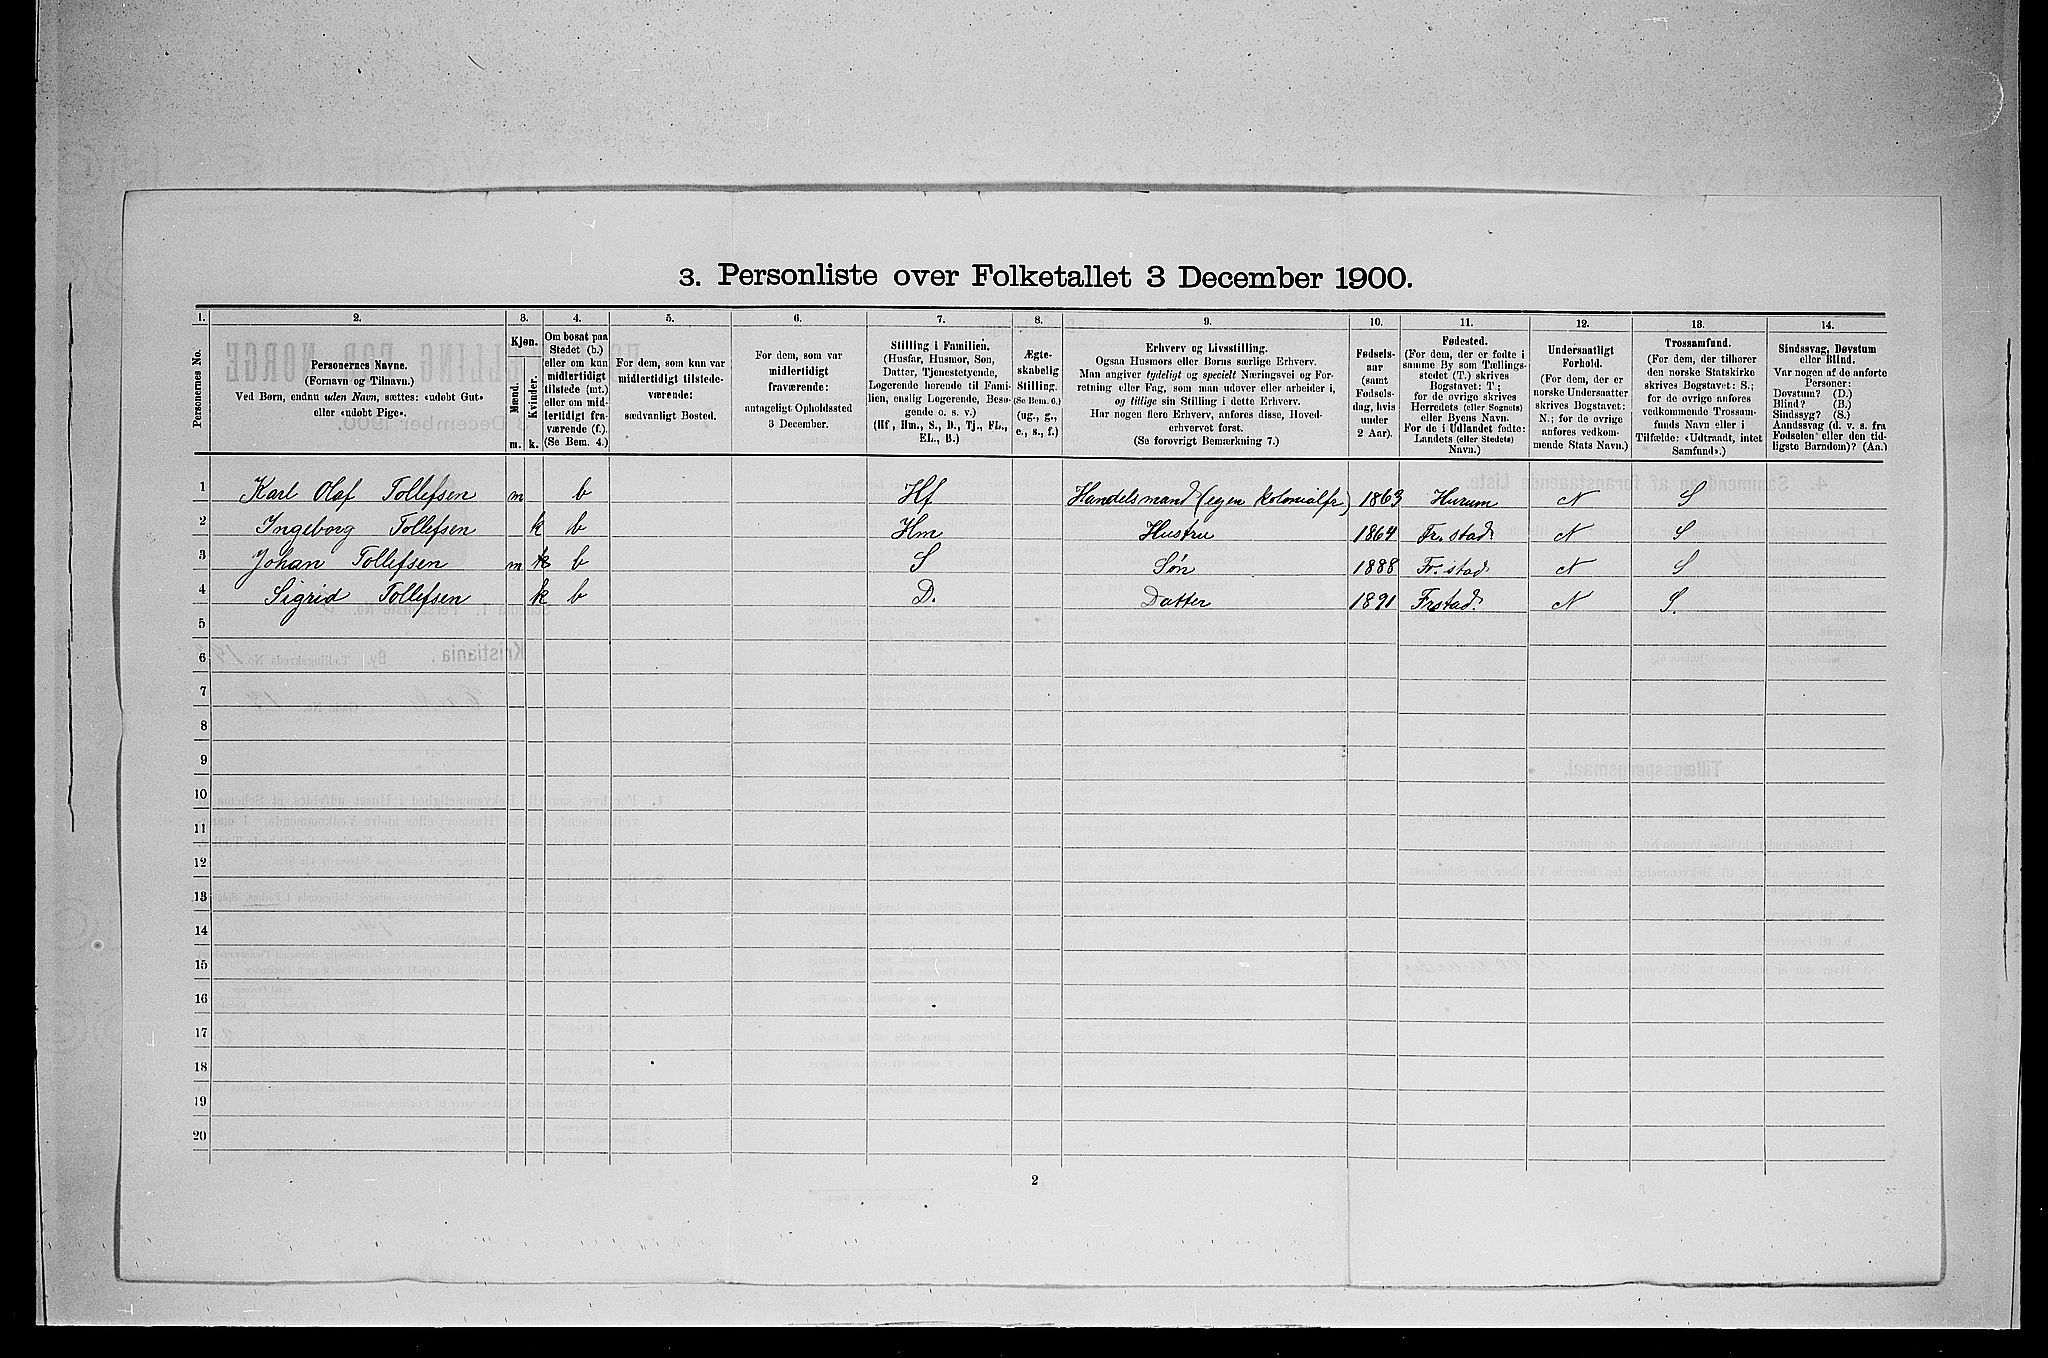 3. Personliste over Folketallet 3 December 1900.
1. 2. 3. 4. 5. 6. 7. 8. 9. 10. 11. 12. 13. 14.
Personernes No.
Personernes Navne.
(Fornavn og Tilnavn.)
Ved Børn, endnu uden Navn, sættes: «udøbt Gut»
eller «udøbt Pige».
Kjøn.
Mænd.
Kvinder.
m. k.
Om bosat paa
Stedet (b.)
eller om kun
midlertidigt
tilstede (mt.)
eller om mid-
lertidigt fra-
værende (f.).
(Se Bem. 4.)
For dem, som kun var
midlertidigt tilstede-
værende:
sædvanligt Bosted.
For dem, som var
midlertidigt
fraværende:
antageligt Opholdssted
3 December.
Stilling i Familien.
(Husfar, Husmor, Søn,
Datter, Tjenestetyende,
Logerende hørende til Fami-
lien, enslig Logerende, Besø-
gende o. s. v.)
(Hf, Hm., S., D., Tj., FL.,
EL., B.)
Ægte-
skabelig
Stilling.
(Se Bem. 6.)
(ug., g.,
e., s., f.)
Erhverv og Livsstilling.
Ogsaa Husmors eller Børns særlige Erhverv.
Man angiver tydeligt og specielt Næringsvei og For-
retning eller Fag, som man udøver eller arbeider i,
og tillige sin Stilling i dette Erhverv.
Har nogen flere Erhverv, anføres disse, Hoved-
erhvervet først.
(Se forøvrigt Bemærkning 7.)
Fødsels-
aar
(samt
Fødsels-
dag, hvis
under
2 Aar).
Fødested.
(For dem, der er fødte i
samme By som Tællings-
stedet (T.) skrives
Bogstavet: T.;
for de øvrige skrives
Herredets (eller Sognets)
eller Byens Navn.
For de i Udlandet fødte:
Landets (eller Stedets)
Navn.)
Undersaatligt
Forhold.
(For dem, der er
norske Undersaatter
skrives Bogstavet:
N.; for de øvrige
anføres vedkom-
mende Stats Navn.)
Trossamfund.
(For dem, der tilhører
den norske Statskirke
skrives Bogstavet: S.;
for de øvrige anføres
vedkommende Trossam-
funds Navn eller i
Tilfælde: «Udtraadt, intet
Samfund».)
Sindssvag, Døvstum
eller Blind.
Var nogen af de anførte
Personer:
Døvstum? (D.)
Blind? (B.)
Sindssyg? (S.)
Aandssvag (d. v. s. fra
Fødselen eller den tid-
ligste Barndom)? (Aa.)
1 Karl Olaf Tollefsen m b Hf Handelsmand (egen kolonialfr) 1863 Hurum N S
2 Ingeborg Tollefsen k b Hm Hustru 1864 Fr.stad N S
3 Johan Tollefsen m k b S Søn 1888 Fr.stad N S
4 Sigrid Tollefsen k b D. Datter 1891 Frstad. N S.
5
6
7
8
9
10
11
12
13
14
15
16
17
18
19
20
2